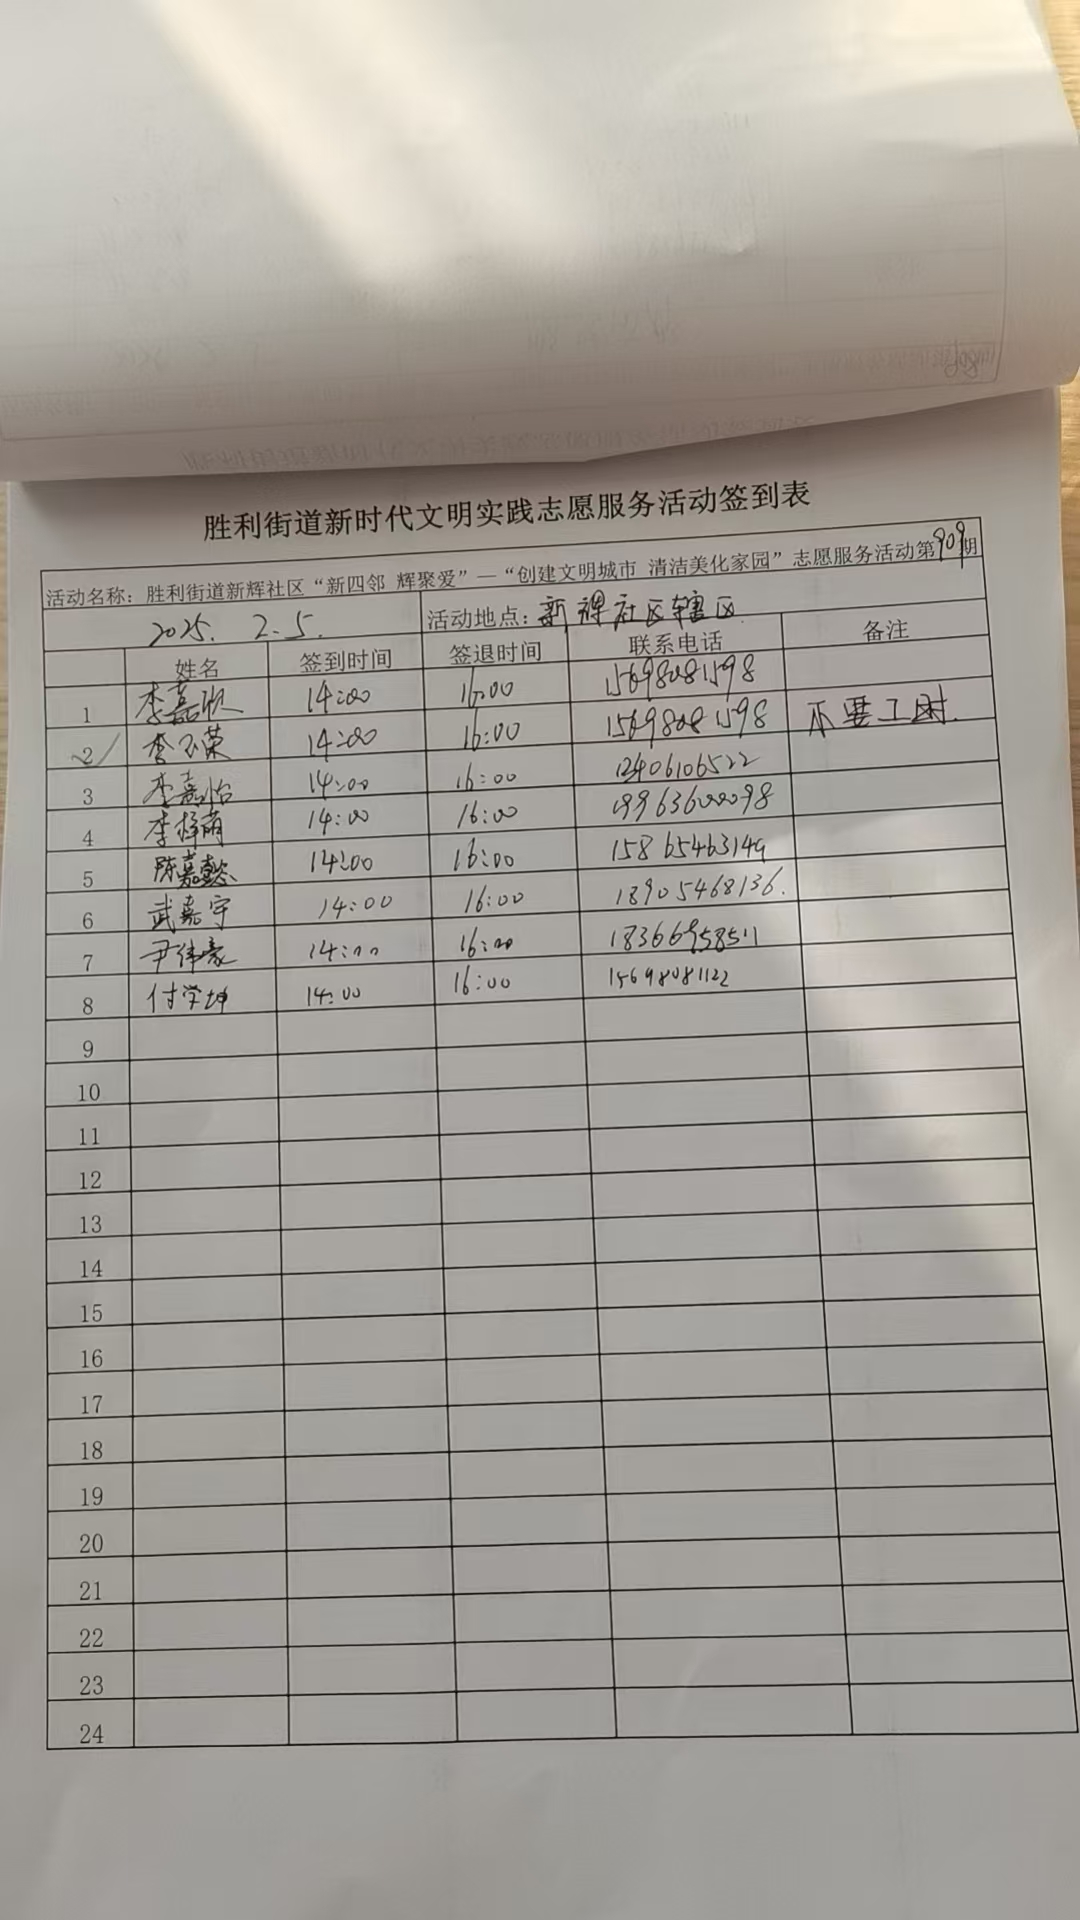 胜利街道新时代文明实践志愿服务活动签到表
活动名称：胜利街道新辉社区“新四邻 辉聚爱”—“创建文明城市 清洁美化家园”志愿服务活动第909期
2025. 2.5. 活动地点：新辉社区辖区
姓名 签到时间 签退时间 联系电话 备注
1 李嘉欣 14:00 16:00 15698081598
2 李玉荣 14:00 16:00 15698081598 不要工时.
3 李嘉怡 14:00 16:00 06106522
4 李梓萌 14:00 16:00 19963600098
5 陈嘉懿 14:00 16:00 15865463149
6 武嘉宇 14:00 16:00 18905468136.
7 尹伟豪 14:00 16:00 18366958511
8 付学坤 14:00 16:00 15698081122
9
10
11
12
13
14
15
16
17
18
19
20
21
22
23
24